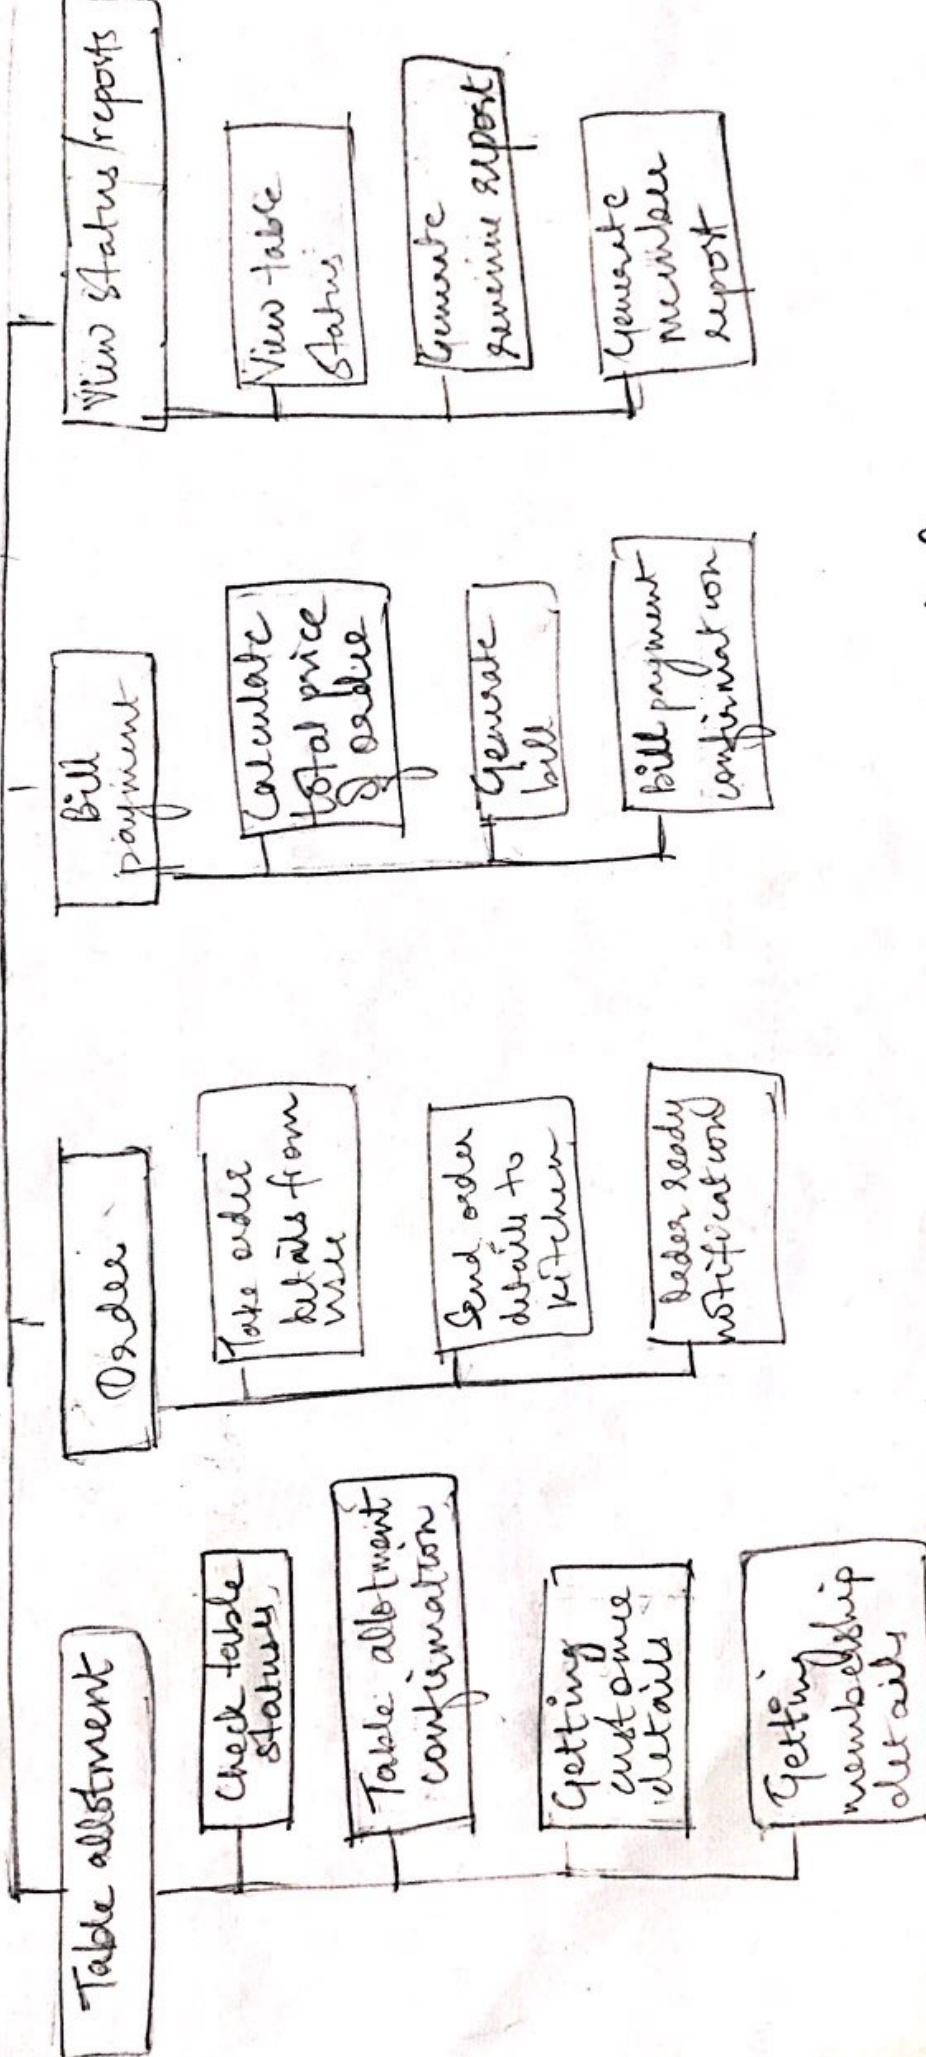 Table allotment
Check table
status
Table allotment
confirmation
Getting
custome
details
Getting
membership
details
Order
Take order
details from
user
Send order
details to
kitchen
Order ready
notification
Bill
payment
Calculate
total price
of order
Generate
bill
Bill payment
confirmation
View status/reports
View table
status
Generate
revenue report
Generate
member
report